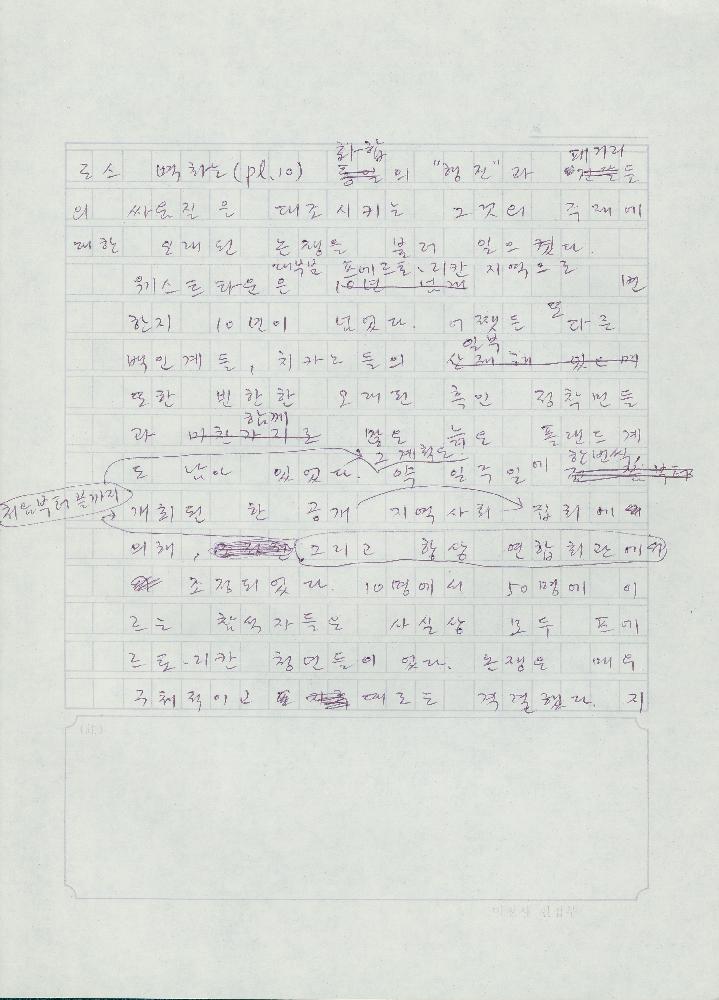 화합 패거리
로스 벽화는(pl.10) 통일의 "행진"과 들
의 싸움질은 대조시키는 그것의 주제에
대한 오래된 논쟁을 불러 일으켰다.
대부분 프에르토·리칸 지역으로
위스트타운은 10년 변
한지 10년이 넘었다. 어쨌든 또 다른
일부
백인계들, 치카노들의
또한 빈한한 오래된 흑인 정착민들
함께
과 마찬가지로 많은 늙은 폴랜드계
그 계획은 한번씩
도 남아 있었다. 약 일주일에
처음부터 끝까지
개최된 한 공개 지역사회 집회에
의해, 그리고 항상 연합회관에서
조정되었다. 10명에서 50명에 이
르는 참석자들은 사실상 모두 프에
르토·리칸 청년들이었다. 논쟁은 매우
구체적이고 때로는 격렬했다. 지
(註)